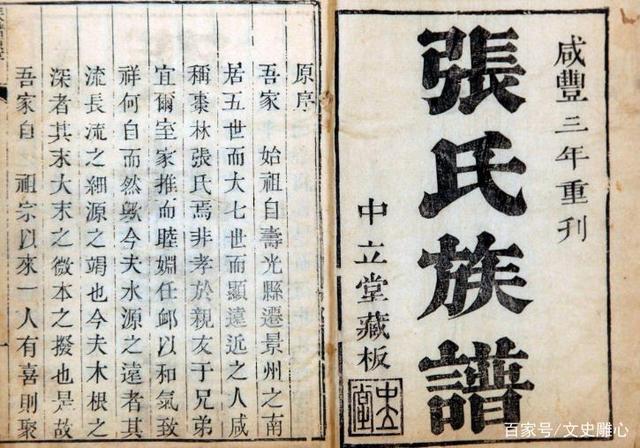 咸豐三年重刊
張氏族譜
中立堂藏板
原序
吾家 始祖自壽光縣遷景州之南
居五世而大七世而顯遠近之人咸
稱棗林張氏焉非孝於親友于兄弟
宜爾室家推而睦婣任卹以和氣致
祥何自而然歟今夫水源之遠者其
流長流之細源之竭也今夫木根之
深者其末大末之微本之撥也是故
吾家自 祖宗以來一人有喜則聚
一
百家号/文史雕心